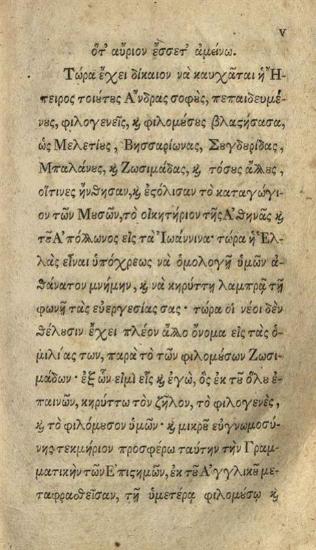 v
ὅτ' αὔριον ἔσσετ' ἀμείνω.
Τώρα ἔχει δίκαιον νὰ καυχᾶται ἡ Ἤ-
πειρος τοιούτους Ἄνδρας σοφοὺς, πεπαιδευμέ-
νους, φιλογενεῖς, ϗ φιλομούσους βλαςήσασα,
ὡς Μελετίους, Βησσαρίωνας, Σουγδουρίδας,
Μπαλάνους, ϗ Ζωσιμάδας, ϗ τόσους ἄλλους,
οἵτινες ἤνθησαν, ϗ ἐςόλισαν τὸ καταγώγι-
ον τῶν Μουσῶν, τὸ οἰκητήριον τῆς Ἀθηνᾶς ϗ
τοῦ Ἀπόλλωνος εἰς τὰ Ἰωάννινα· τώρα ἡ Ἑλ-
λὰς εἶναι ὑπόχρεως νὰ ὁμολογῇ ὑμῶν ἀ-
θάνατον μνήμην, ϗ νὰ κηρύττῃ λαμπρᾷ τῇ
φωνῇ τὰς εὐεργεσίας σας· τώρα οἱ νέοι δὲν
θέλουσιν ἔχει πλέον ἄλλο ὄνομα εἰς τὰς ὁ-
μιλίας των, παρὰ τὸ τῶν φιλομούσων Ζωσι-
μάδων· ἐξ ὧν εἰμὶ εἷς ϗ ἐγὼ, ὃς ἐκ τοῦ ὅλου ἐ-
παινῶν, κηρύττω τὸν ζῆλον, τὸ φιλογενὲς,
ϗ τὸ φιλόμουσον ὑμῶν· ϗ μικρᾶς εὐγνωμοσύ-
νης τεκμήριον προσφέρω ταύτην τὴν Γραμ-
ματικὴν τῶν Ἐπιςημῶν, ἐκ τοῦ Ἀγγλικοῦ με-
ταφρασθεῖσαν, τῇ ὑμετέρᾳ φιλομούσῳ ϗ